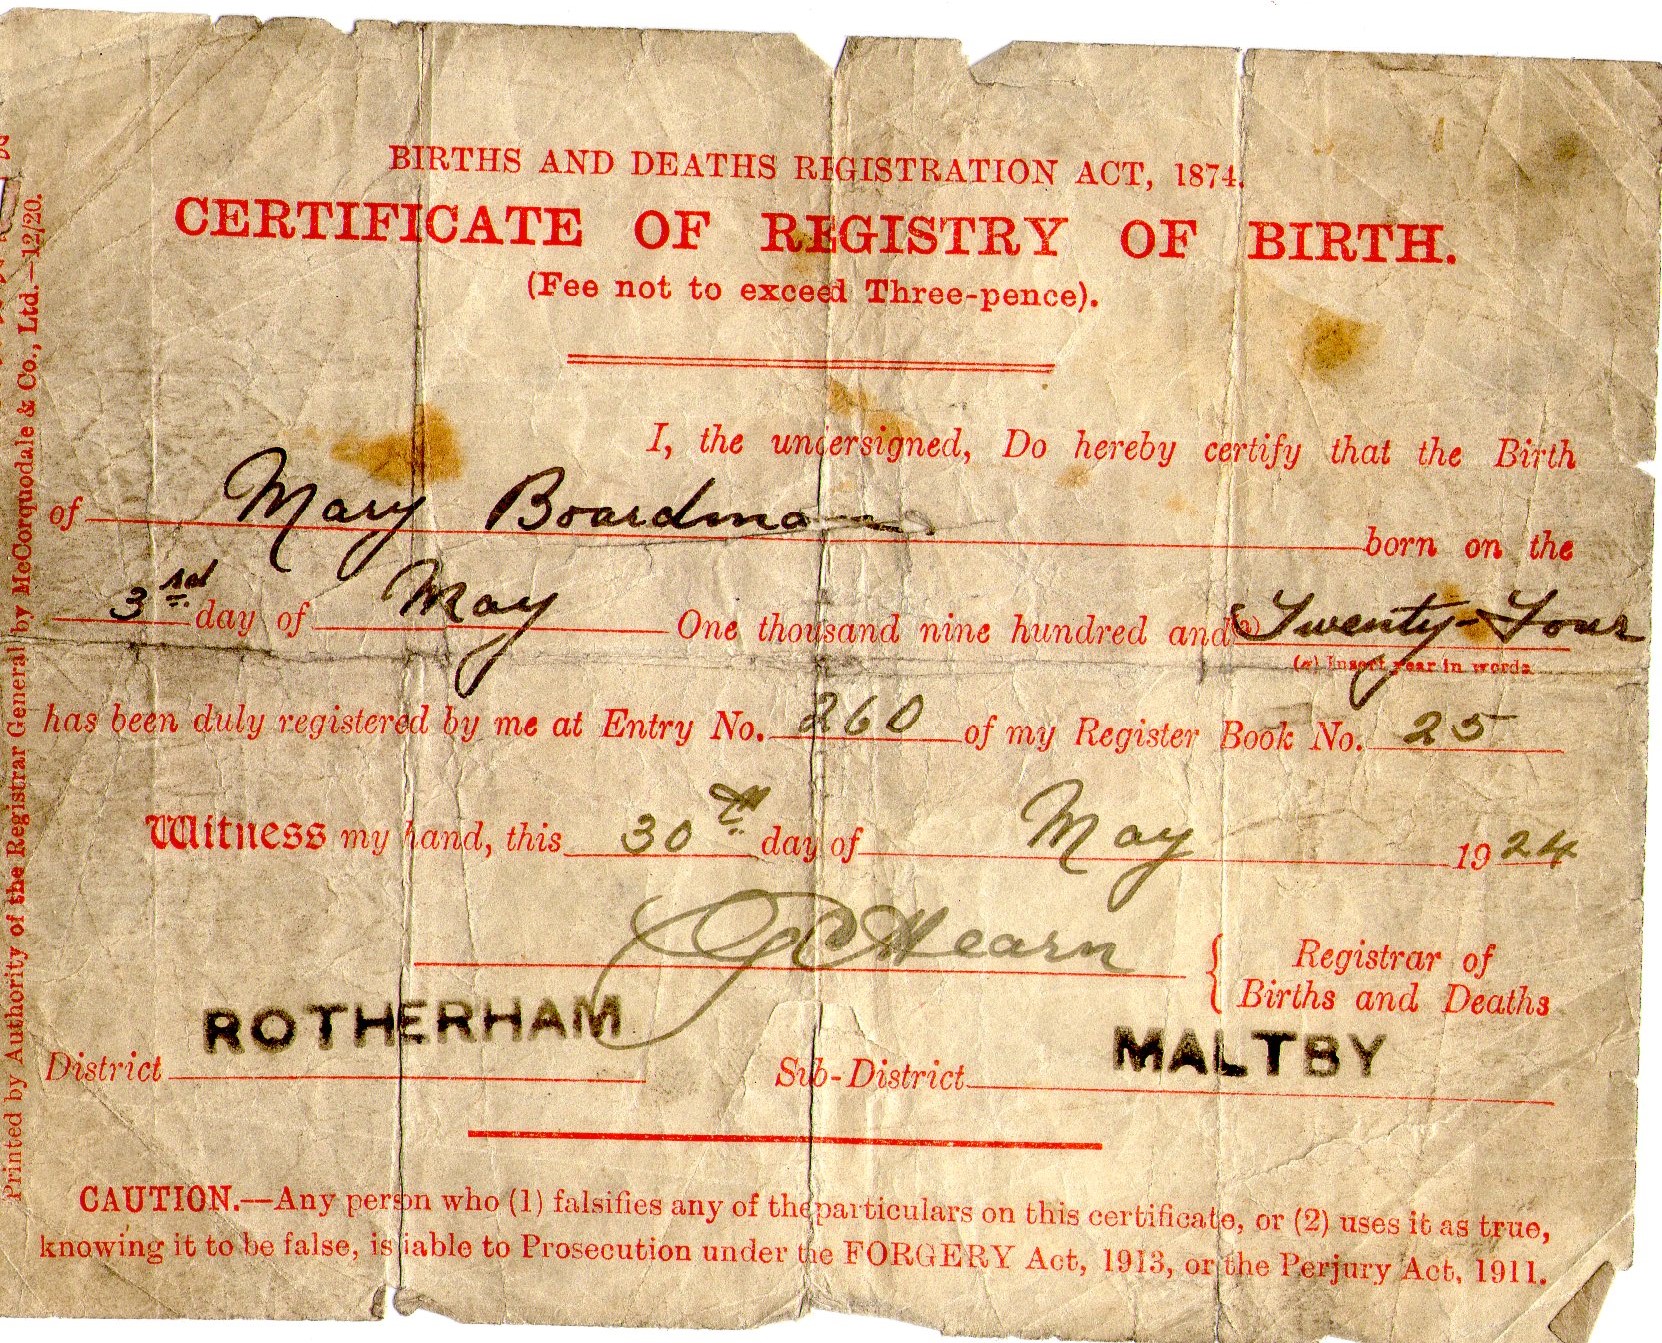 BIRTHS AND DEATHS REGISTRATION ACT, 1874.
CERTIFICATE OF REGISTRY OF BIRTH.
(Fee not to exceed Three-pence).
I, the undersigned, Do hereby certify that the Birth
of Mary Boardman born on the
3rd day of May One thousand nine hundred and (a) Twenty-Four
(a) Insert year in words.
has been duly registered by me at Entry No. 260 of my Register Book No. 25
Witness my hand, this 30th day of May 1924
Hearn Registrar of
Births and Deaths
District ROTHERHAM Sub-District MALTBY
CAUTION.—Any person who (1) falsifies any of the particulars on this certificate, or (2) uses it as true,
knowing it to be false, is liable to Prosecution under the FORGERY Act, 1913, or the Perjury Act, 1911.
Printed by Authority of the Registrar General by McCorquodale & Co., Ltd.—12/20.